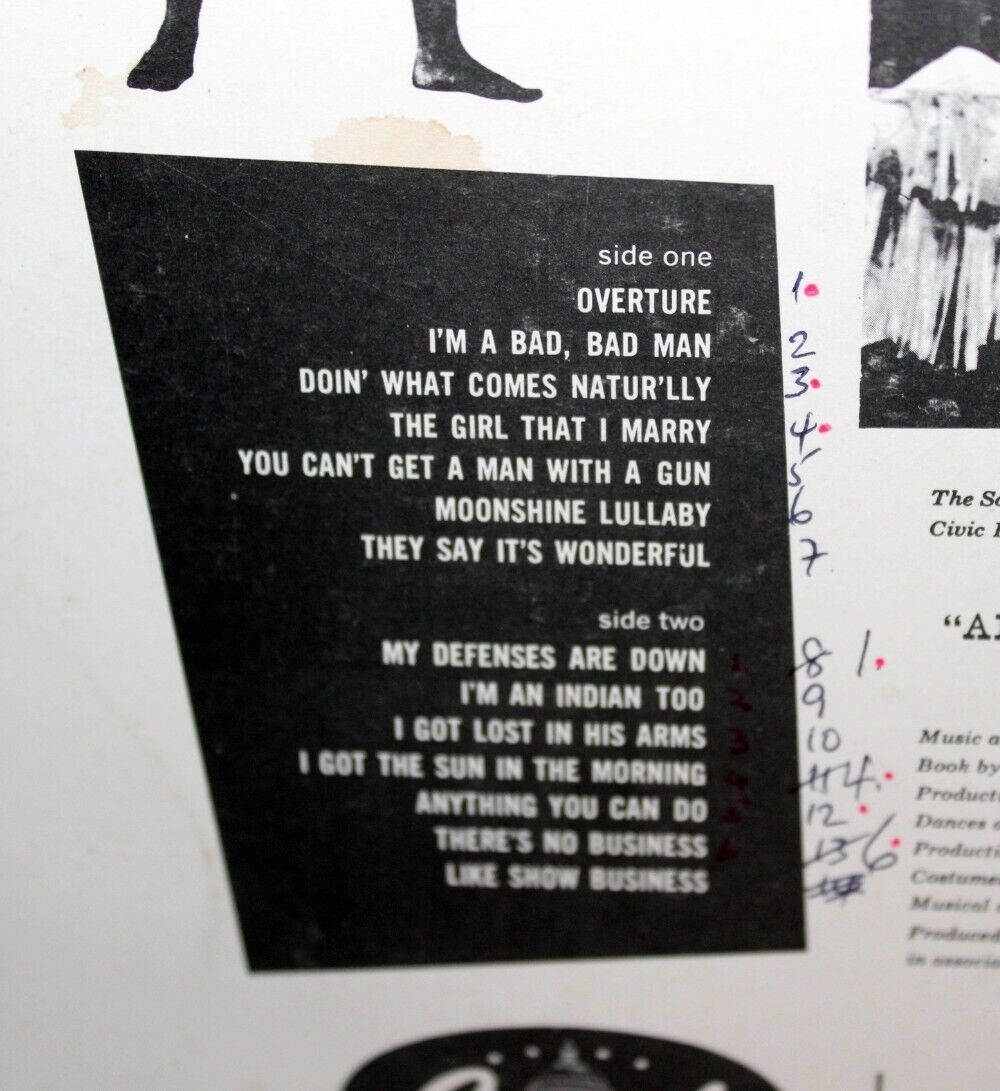 side one
OVERTURE 1.
I'M A BAD, BAD MAN 2
DOIN' WHAT COMES NATUR'LLY 3.
THE GIRL THAT I MARRY 4.
YOU CAN'T GET A MAN WITH A GUN 5
MOONSHINE LULLABY 6
THEY SAY IT'S WONDERFUL 7
side two
MY DEFENSES ARE DOWN 1 8 1.
I'M AN INDIAN TOO 2 9
I GOT LOST IN HIS ARMS 3 10
I GOT THE SUN IN THE MORNING 11 4.
ANYTHING YOU CAN DO 12.
THERE'S NO BUSINESS 13 6.
LIKE SHOW BUSINESS
The
Civic
Music
Book by
Dances
Musical
Produced
in